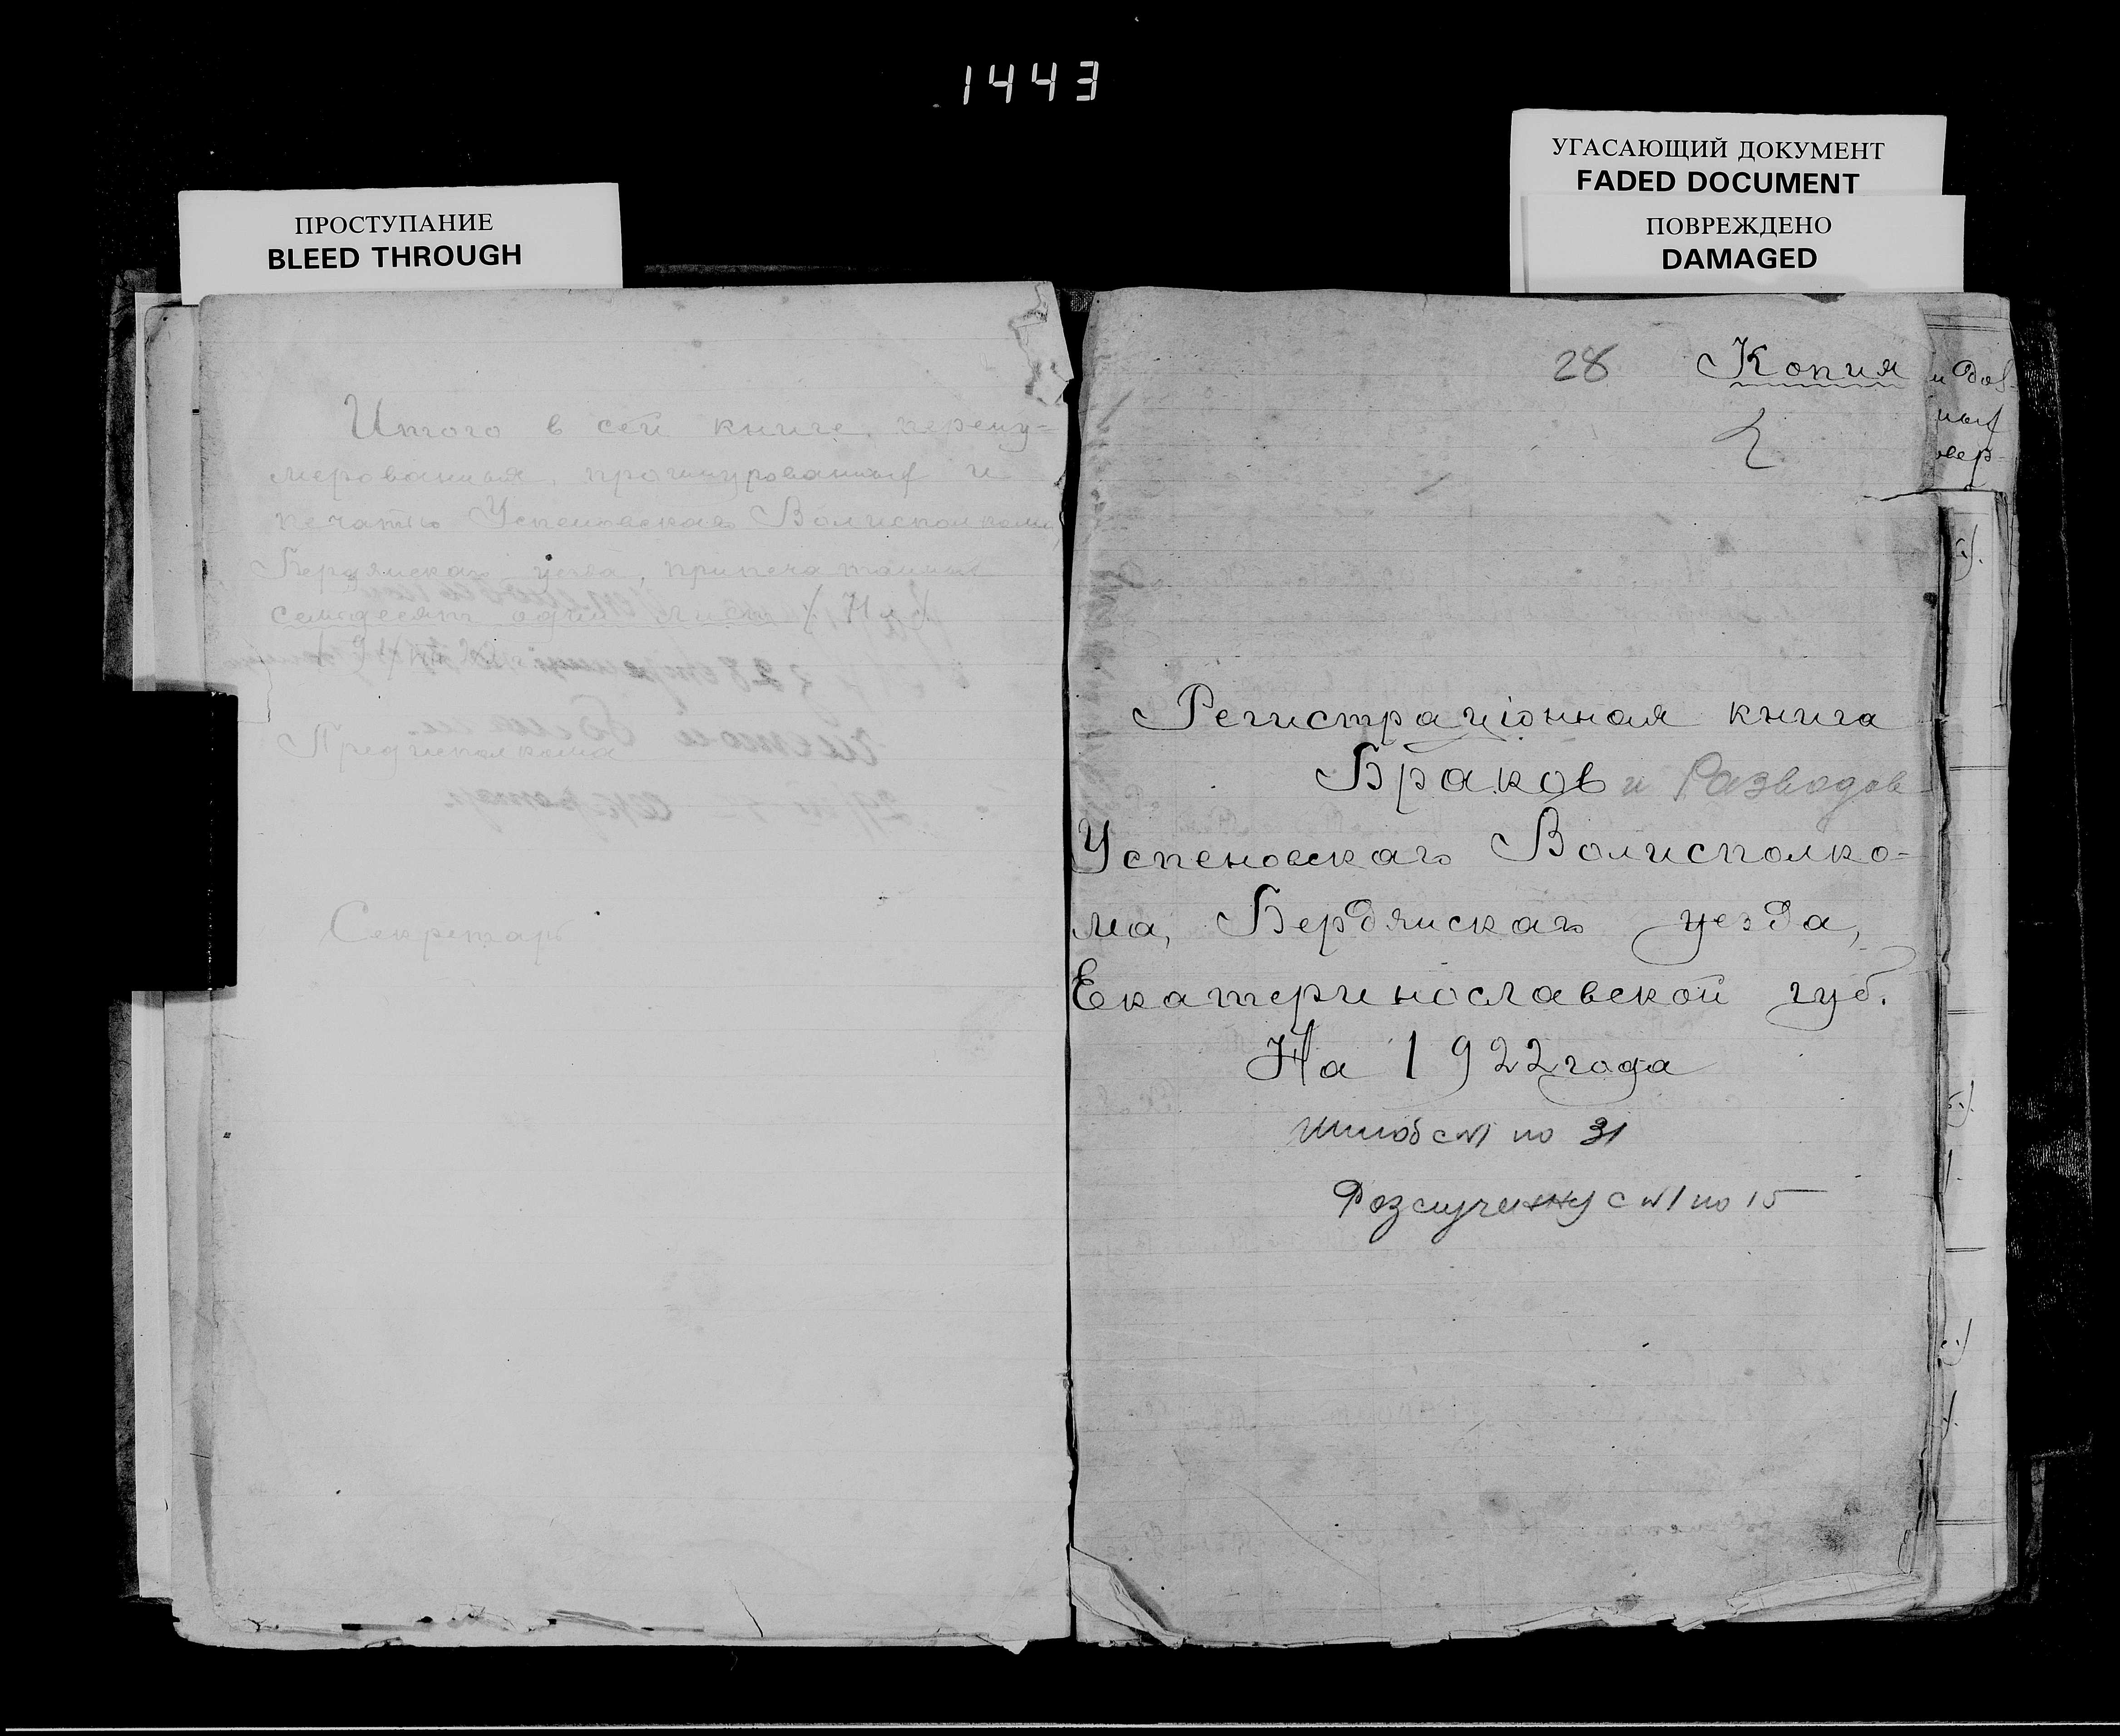 1443
УГАСАЮЩИЙ ДОКУМЕНТ
FADED DOCUMENT
ПОВРЕЖДЕНО
DAMAGED
ПРОСТУПАНИЕ
BLEED THROUGH
Итого в сей книге, перену-
мерованныя, прошнурованных и
печатью Успеновскаго Волисполкома
Бердянскаго уезда, припечатанных
семьдесят один лист /71 л/
Предисполкома
Секретарь
28 Копия
Регистраціонная книга
Браков и Разводов
Успеновскаго Волисполко-
ма, Бердянскаго уезда,
Екатеринославской губ.
На 1922 года
Шлюб с №1 по 31
Розлучення с №1 по 15